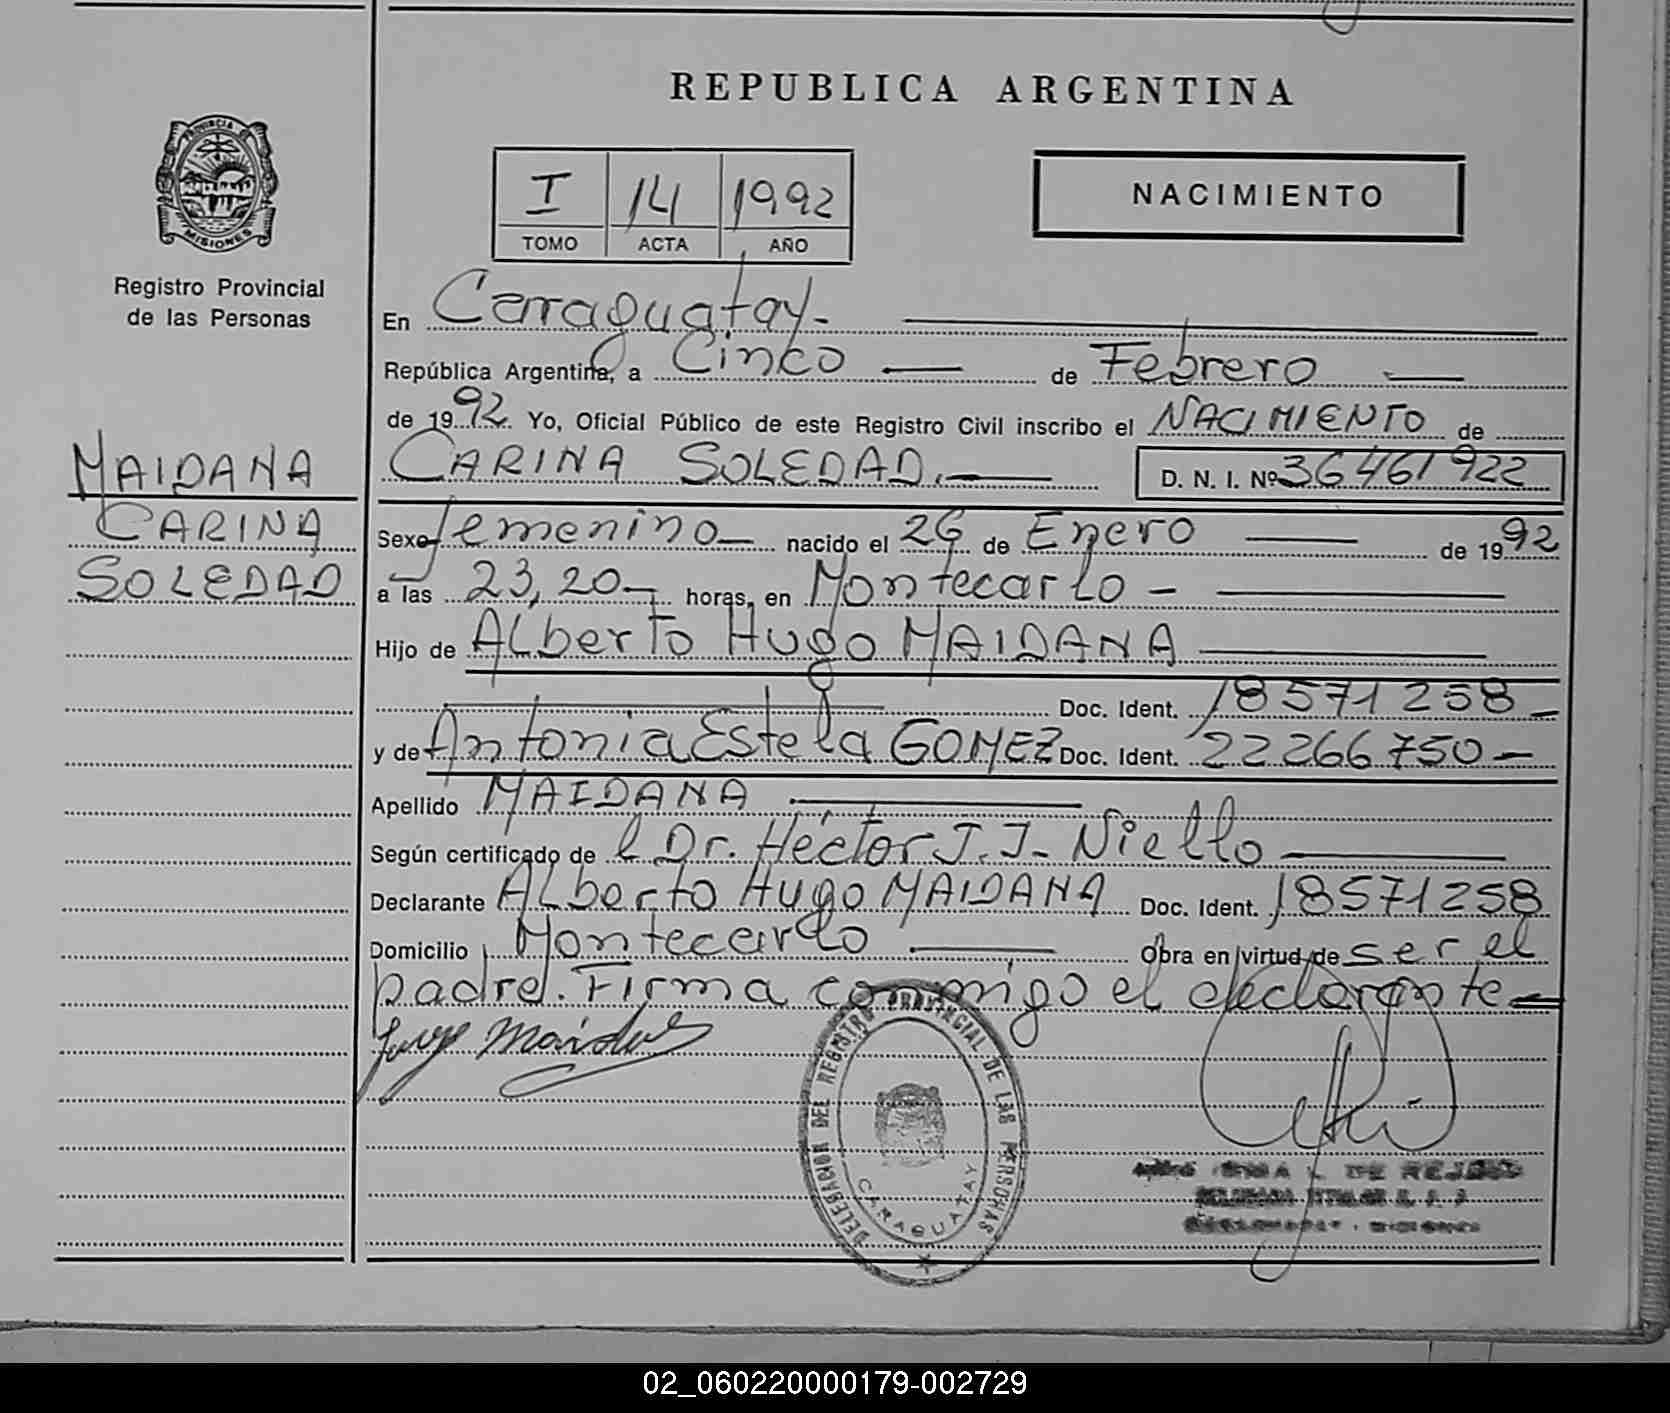 REPUBLICA ARGENTINA
PROVINCIA DE
MISIONES
Registro Provincial
de las Personas
I 14 1992
TOMO ACTA AÑO
NACIMIENTO
En Caraguatay.-
República Argentina, a Cinco — de Febrero —
de 1992. Yo, Oficial Público de este Registro Civil inscribo el NACIMIENTO de
CARINA SOLEDAD.— D. N. I. Nº 36461922
MAIDANA
CARINA
SOLEDAD
Sexo femenino— nacido el 26 de Enero — de 1992
a las 23,20— horas, en Montecarlo -
Hijo de Alberto Hugo MAIDANA
Doc. Ident. 18571258-
y de Antonia Estela GOMEZ Doc. Ident. 22266750-
Apellido MAIDANA
Según certificado de l Dr. Héctor J.J. Niello
Declarante Alberto Hugo MAIDANA Doc. Ident. 18571258
Domicilio Montecarlo — Obra en virtud de ser el
padre. Firma conmigo el declarante-
DELEGACION DEL REGISTRO PROVINCIAL DE LAS PERSONAS
CARAGUATAY
DE REJ
02_060220000179-002729